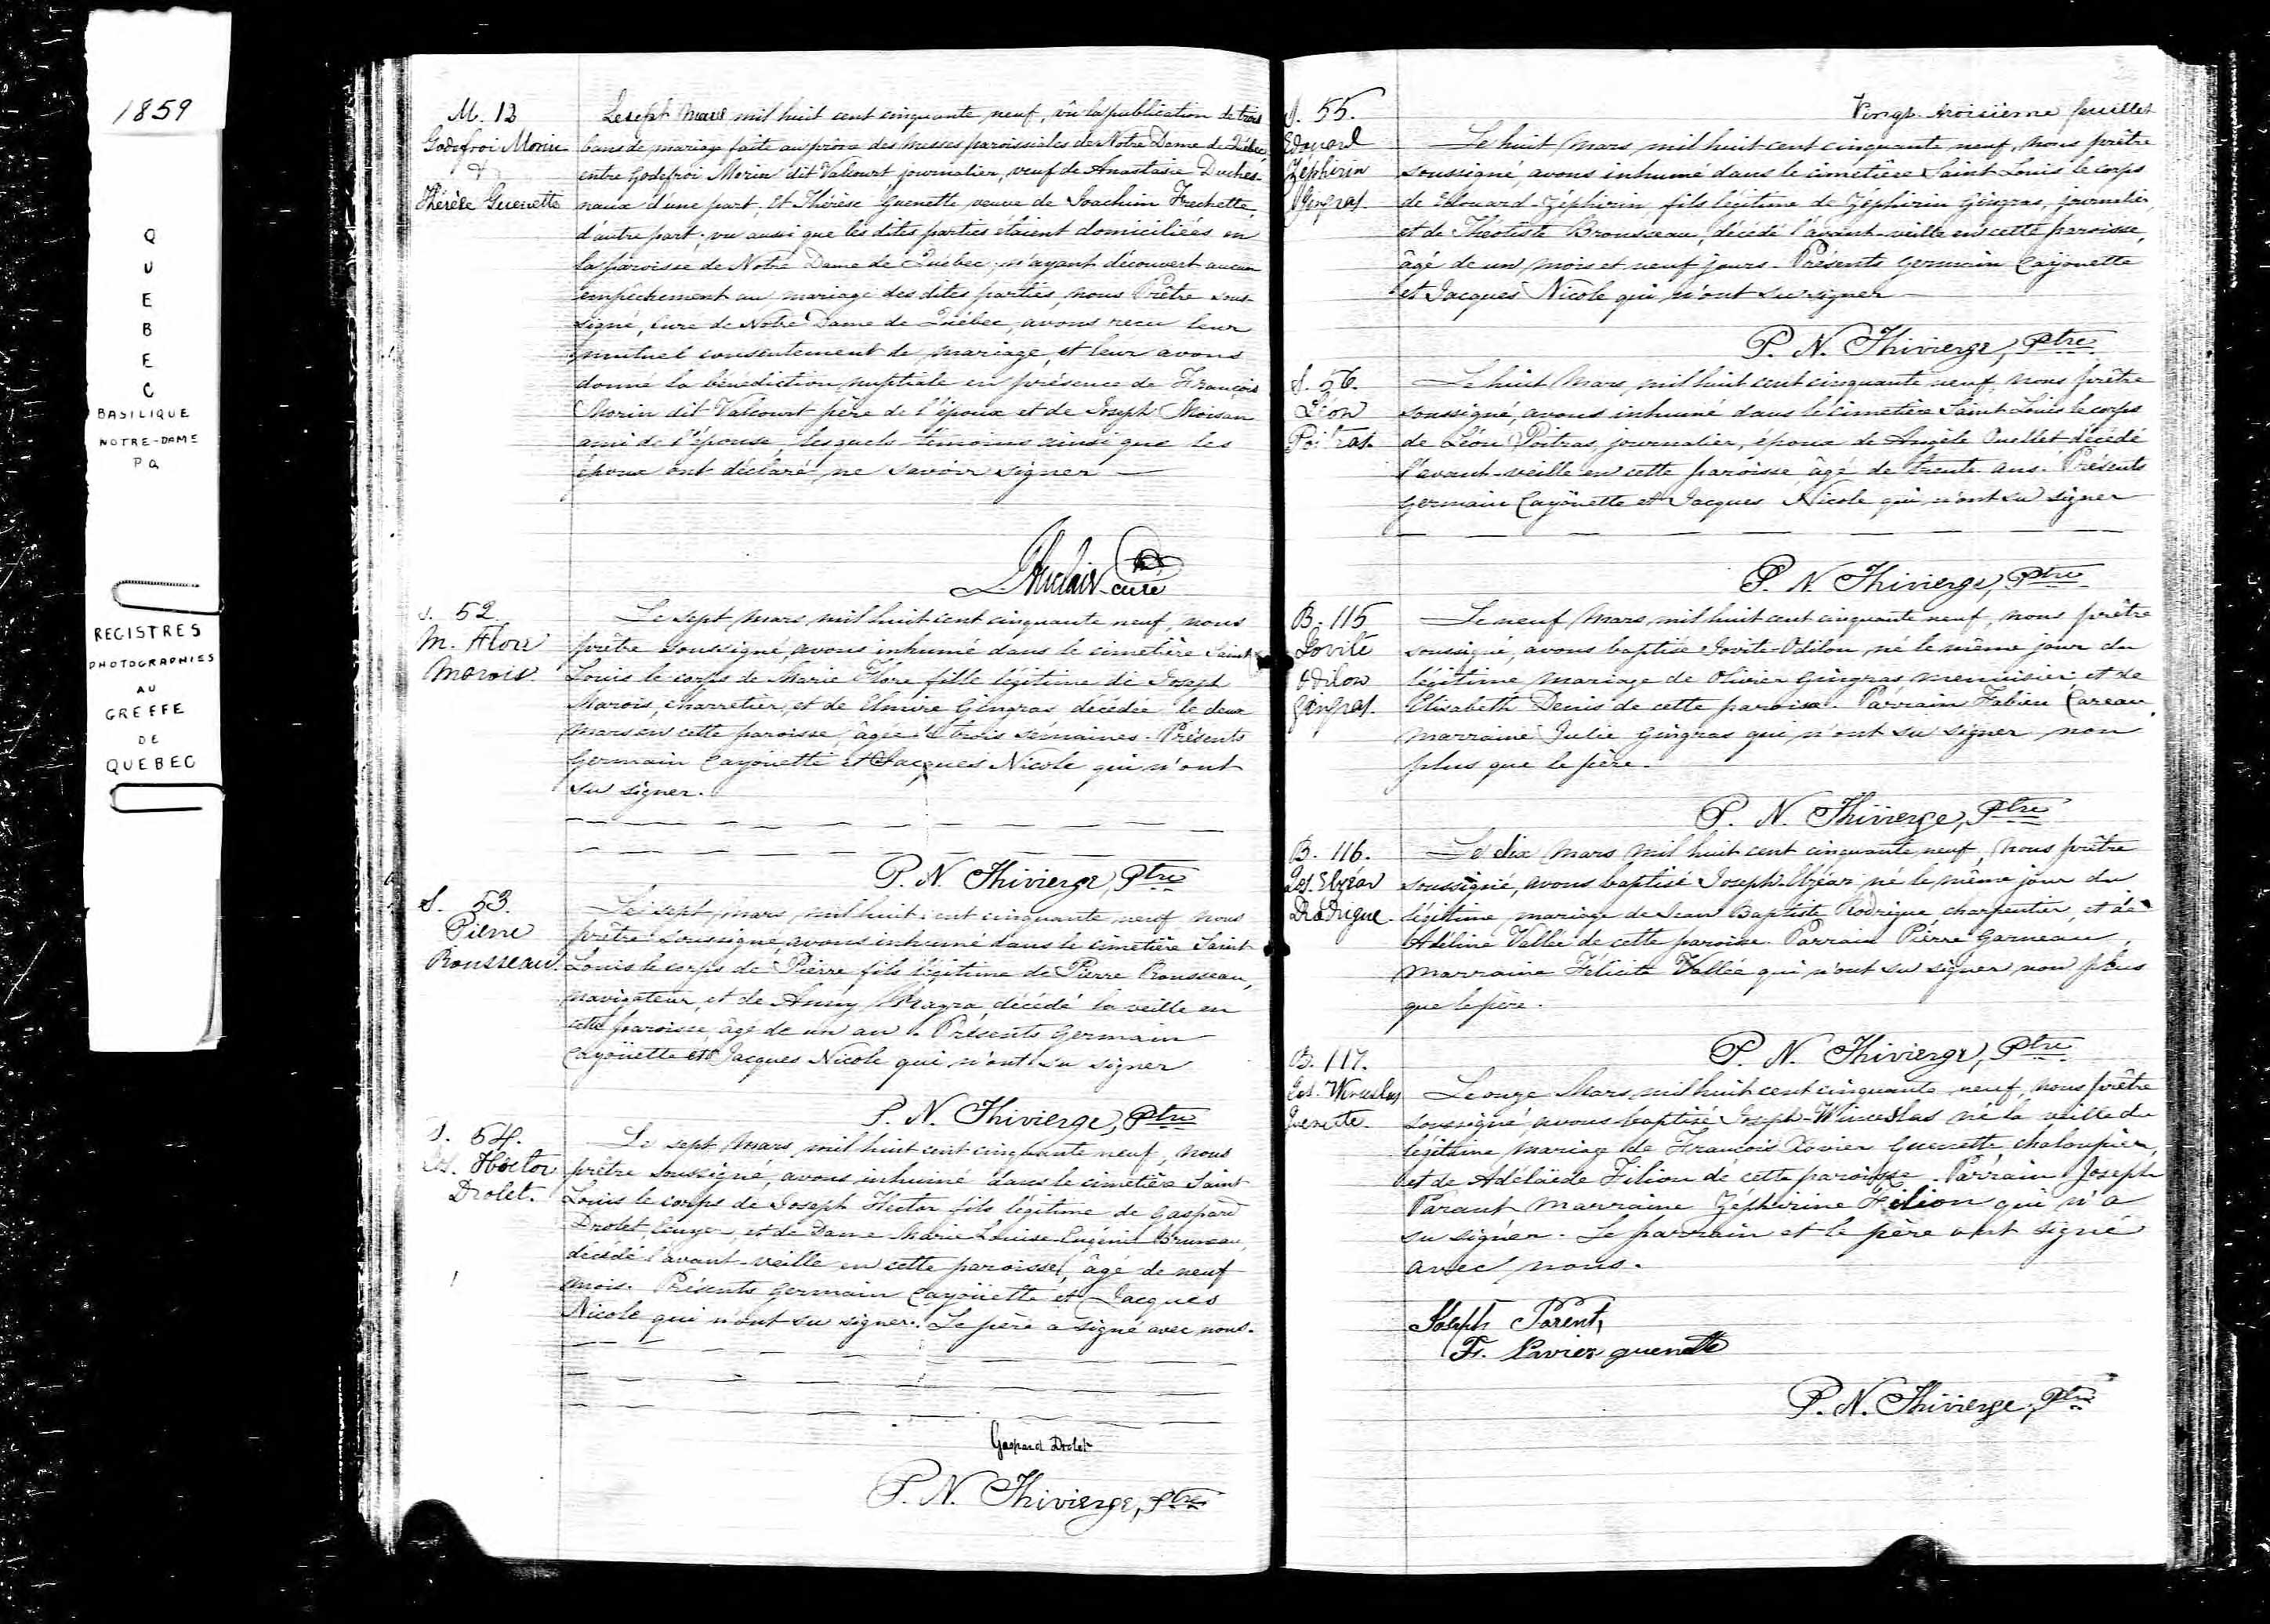 1859
QUEBEC
BASILIQUE
NOTRE-DAME
P Q
REGISTRES
PHOTOGRAPHIES
AU
GREFFE
DE
QUEBEC
M. 13
Godefroi Morin
&
Thérèse Guenette
Le sept mars mil huit cent cinquante neuf, vû la publication de trois
bans de mariage faite au prône des Messes paroissiales de Notre Dame de Québec
entre Godefroi Morin dit Valcourt journalier, veuf de Anastasie Duches-
naux d'une part, Et Thérèse Guenette, veuve de Joachim Frechette,
d'autre part; vu aussi que les dites parties étaient domiciliées en
la paroisse de Notre Dame de Québec; n'ayant découvert aucun
empêchement au mariage des dites parties, nous Prêtre sous-
signé, Curé de Notre Dame de Québec, avons reçu leur
mutuel consentement de mariage, et leur avons
donné la bénédiction nuptiale en présence de François
Morin dit Valcourt père de l'époux et de Joseph Moisan
ami de l'épouse, lesquels témoins ainsi que les
époux ont déclaré ne savoir signer —
Auclair curé
S. 52.
M. Flore
Marois.
Le sept mars, mil huit cent cinquante neuf, nous
prêtre soussigné, avons inhumé dans le cimetière Saint
Louis le corps de Marie Flore fille légitime de Joseph
Marois, charretier, et de Elmire Gingras décédée le deux
mars en cette paroisse âgée de trois semaines. Présents
Germain Cayouette et Jacques Nicole qui n'ont
su signer.
P. N. Thivierge, Ptre
S. 53.
Pierre
Rousseau.
Le sept mars, mil huit cent cinquante neuf nous
prêtre soussigné, avons inhumé dans le cimetière Saint
Louis le corps de Pierre fils légitime de Pierre Rousseau,
navigateur, et de Anny décédé la veille en
cette paroisse, âgé de un an. Présents Germain
Cayouette et Jacques Nicole qui n'ont su signer
P. N. Thivierge, Ptre
S. 54.
Jos. Hector
Drolet.
Le sept mars, mil huit cent cinquante neuf, nous
prêtre soussigné, avons inhumé dans le cimetière Saint
Louis le corps de Joseph Hector fils légitime de Gaspard
Drolet, Ecuyer, et de Dame Marie Louise Eugénie Bruneau,
décédé l'avant-veille en cette paroisse, âgé de neuf
mois. Présents Germain Cayouette et Jacques
Nicole qui n'ont su signer. Le père a signé avec nous.
Gaspard Drolet
P. N. Thivierge, Ptre
Vingt-troisième feuillet
S. 55.
Edouard
Zéphirin
Gingras.
Le huit Mars, mil huit cent cinquante neuf, nous prêtre
soussigné, avons inhumé dans le cimetière Saint Louis le corps
de Edouard-Zéphirin, fils légitime de Zéphirin Gingras, journalier,
et de Théotiste Brousseau, décédé l'avant-veille en cette paroisse,
âgé de un mois et neuf jours. Présents Germain Cayouette
et Jacques Nicole qui n'ont su signer —
P. N. Thivierge, Ptre
S. 56.
Léon
Poitras.
Le huit Mars, mil huit cent cinquante neuf, nous prêtre
soussigné, avons inhumé dans le cimetière Saint Louis le corps
de Léon Poitras, journalier, époux de Angèle Ouellet décédé
l'avant-veille en cette paroisse, âgé de trente ans. Présents
Germain Cayouette et Jacques Nicole qui n'ont su signer
P. N. Thivierge, Ptre
B. 115
Jovite
Odilon
Gingras.
Le neuf Mars, mil huit cent cinquante neuf, nous prêtre
soussigné, avons baptisé Jovite-Odilon, né le même jour du
légitime mariage de Olivier Gingras menuisier, et de
Elisabeth Denis de cette paroisse. Parrain Fabien Careau,
marraine Julie Gingras qui n'ont su signer non
plus que le père.
P. N. Thivierge, Ptre
B. 116.
Jos. Elzéar
Rodrigue.
Le dix Mars, mil huit cent cinquante neuf, nous prêtre
soussigné, avons baptisé Joseph-Elzéar né le même jour du
légitime mariage de Jean Baptiste Rodrigue charpentier, et de
Adéline Vallée de cette paroisse. Parrain Pierre Garneau,
marraine Félicité Vallée qui n'ont su signer non plus
que le père.
P. N. Thivierge, Ptre
B. 117.
Jos. Winceslas
Guenette.
Le onze Mars, mil huit cent cinquante neuf, nous prêtre
soussigné, avons baptisé Joseph-Winceslas né la veille du
légitime mariage de François Xavier Guenette, chaloupier,
et de Adélaïde Filion de cette paroisse. Parrain Joseph
Parant marraine Zéphirine Filion qui n'a
su signer. Le parrain et le père ont signé
avec nous.
Joseph Parent,
Fr. Xavier guenette
P. N. Thivierge, Ptre